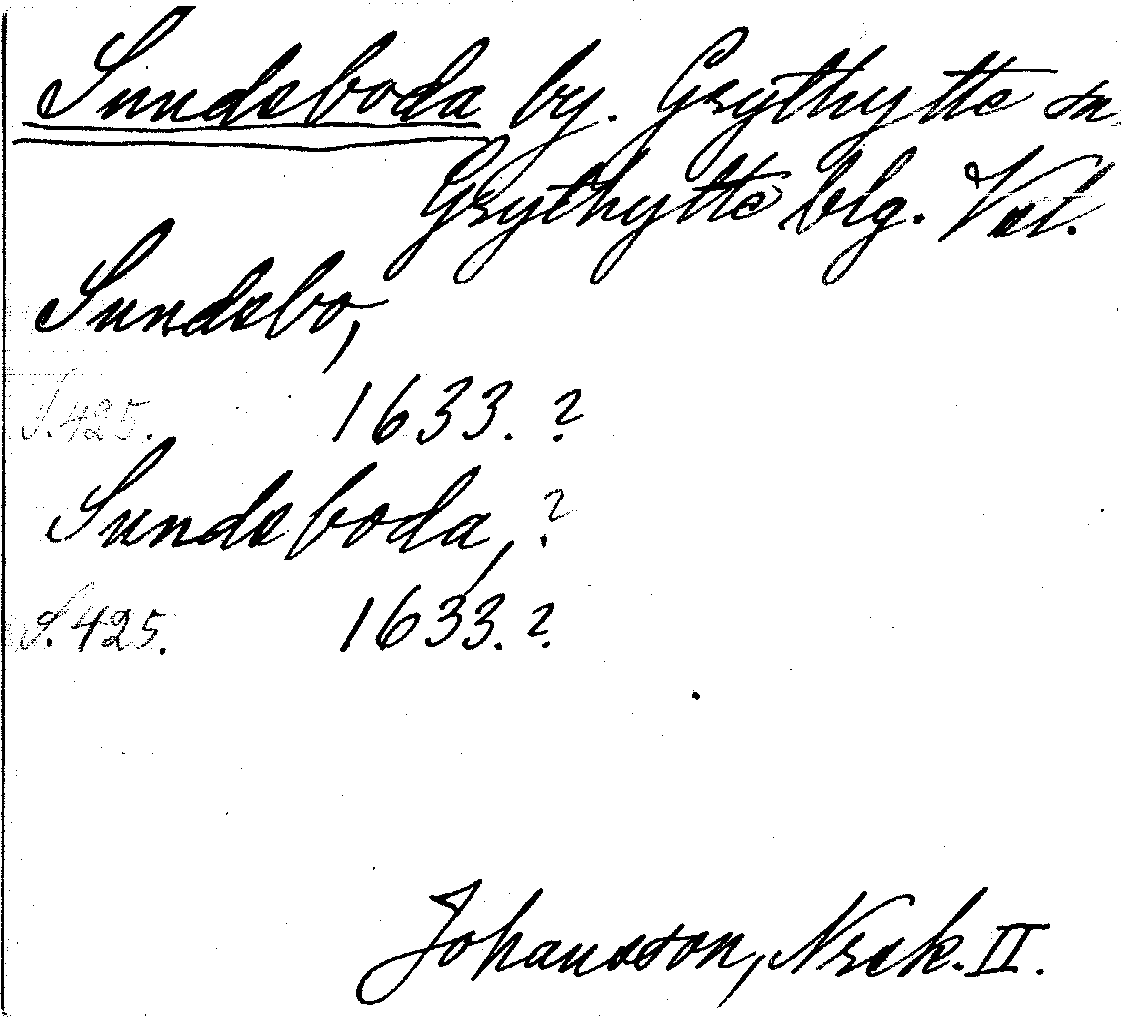 Sundeboda by. Grythytte sn
Grythytte blg. Vstl.
Sundebo,
S. 425. 1633. ?
Sundeboda, ?
S. 425. 1633. ?
Johansson, Noraskog. II.